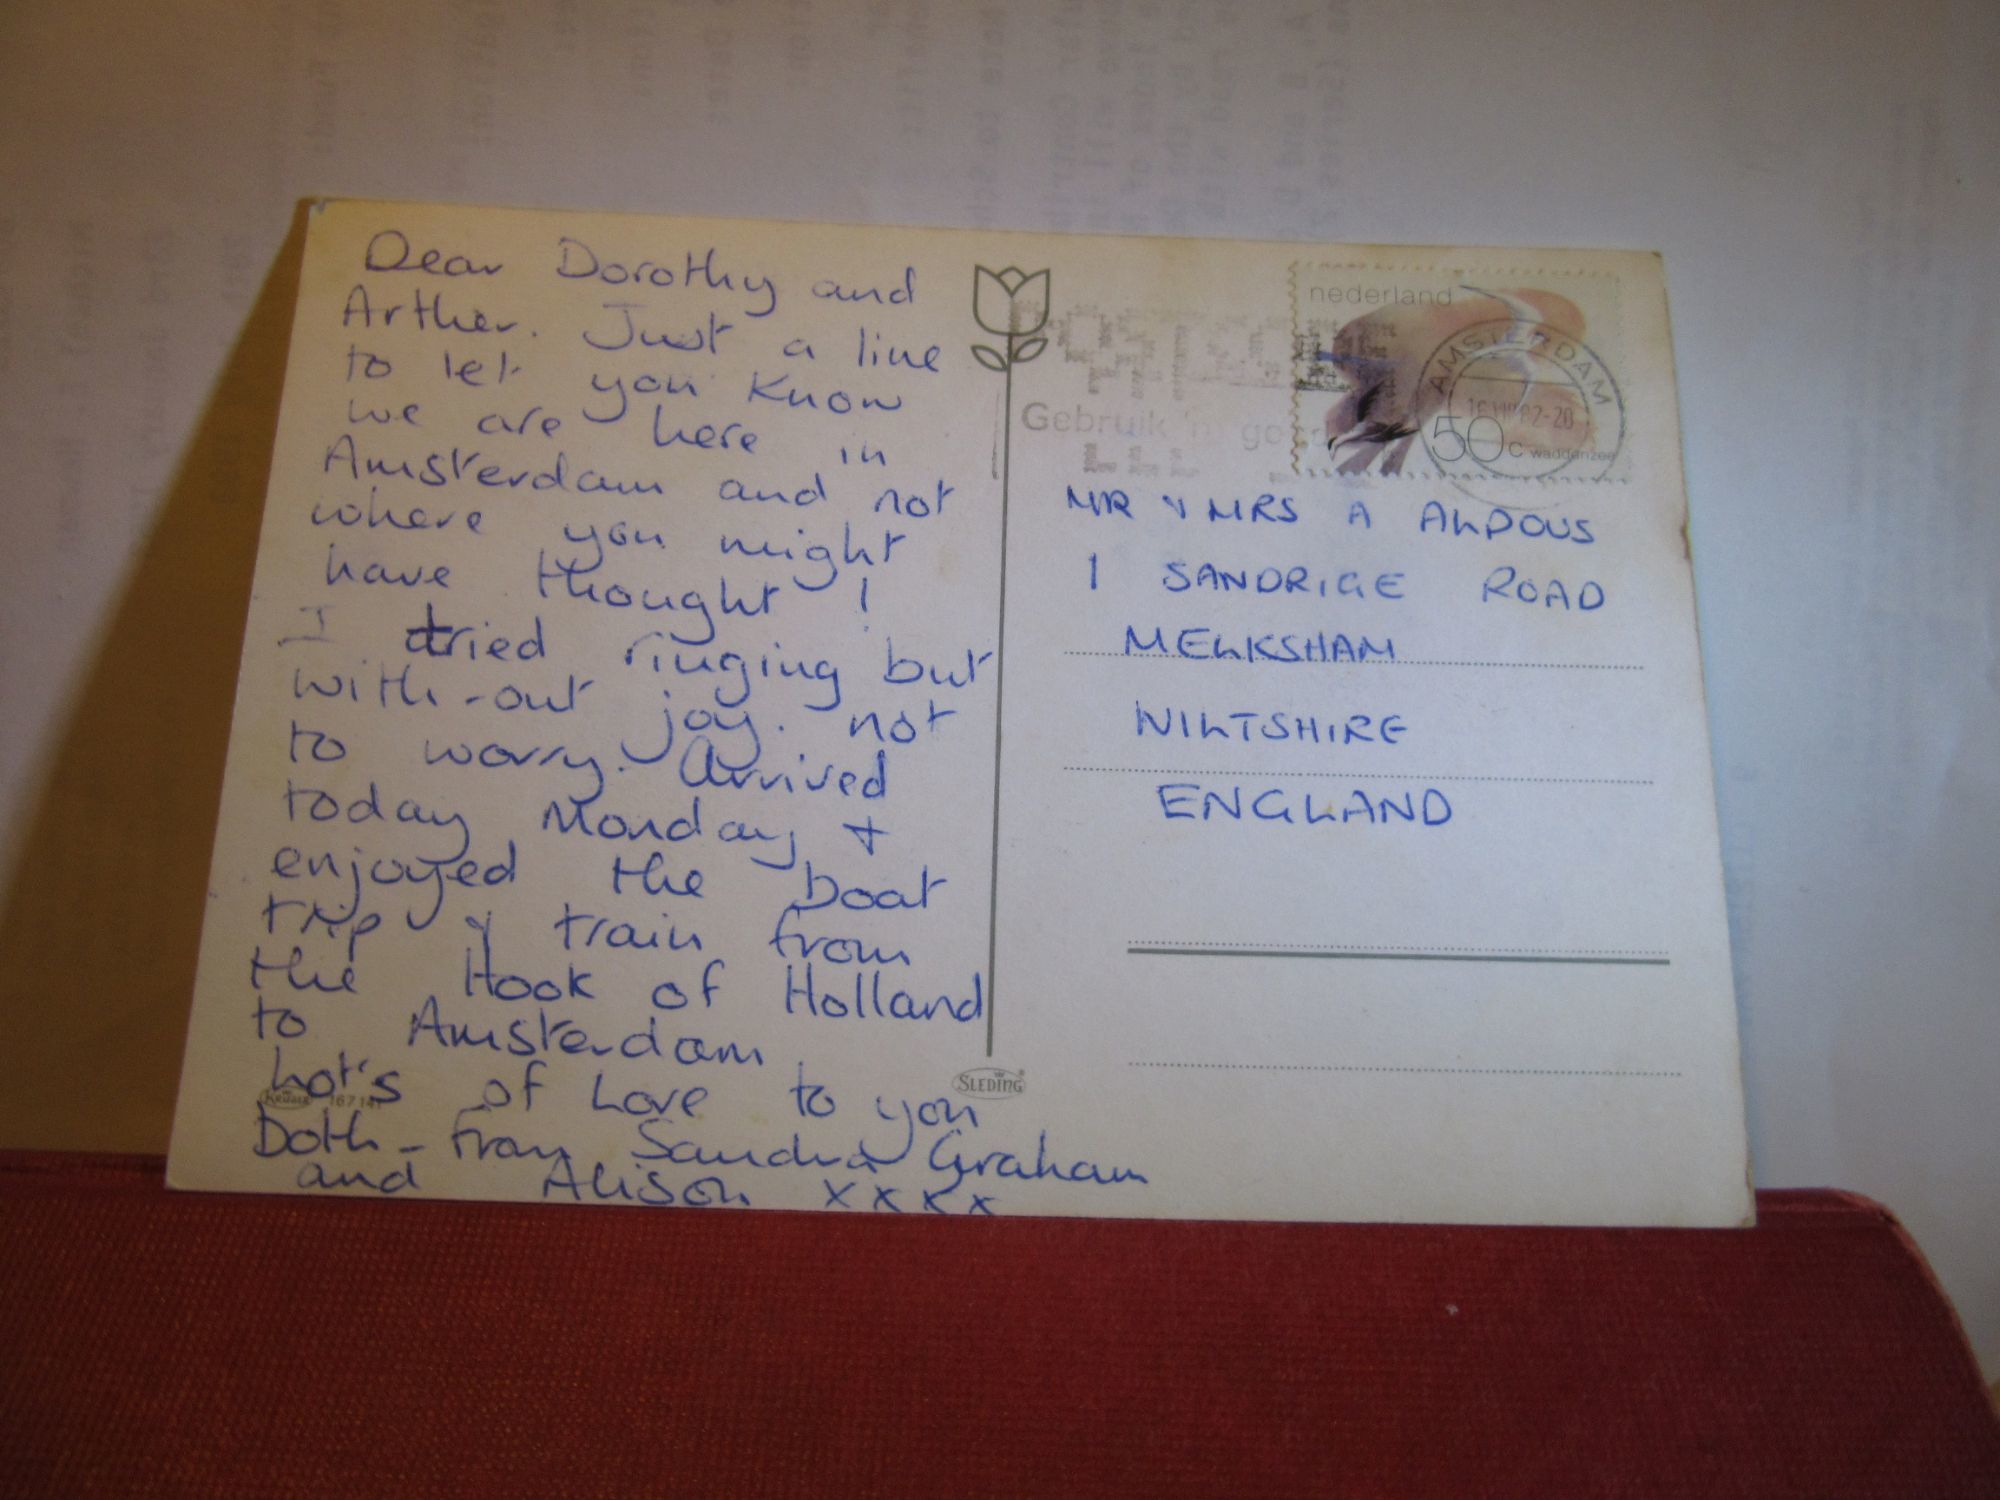 Dear Dorothy and
Arther. Just a line
to let you know
we are here in
Amsterdam and not
where you might
have thought !
I tried ringing but
with-out joy. not
to worry. Arrived
today Monday +
enjoyed the boat
trip & train from
the Hook of Holland
to Amsterdam
Lot's of Love to you
Both - from Sandra Graham
and Alison xxxx
KRÜGER
SLEDING
nederland
AMSTERDAM
50c waddenzee
Gebruik 'm
MR & MRS A ALDOUS
1 SANDRIGE ROAD
MELKSHAM
WILTSHIRE
ENGLAND